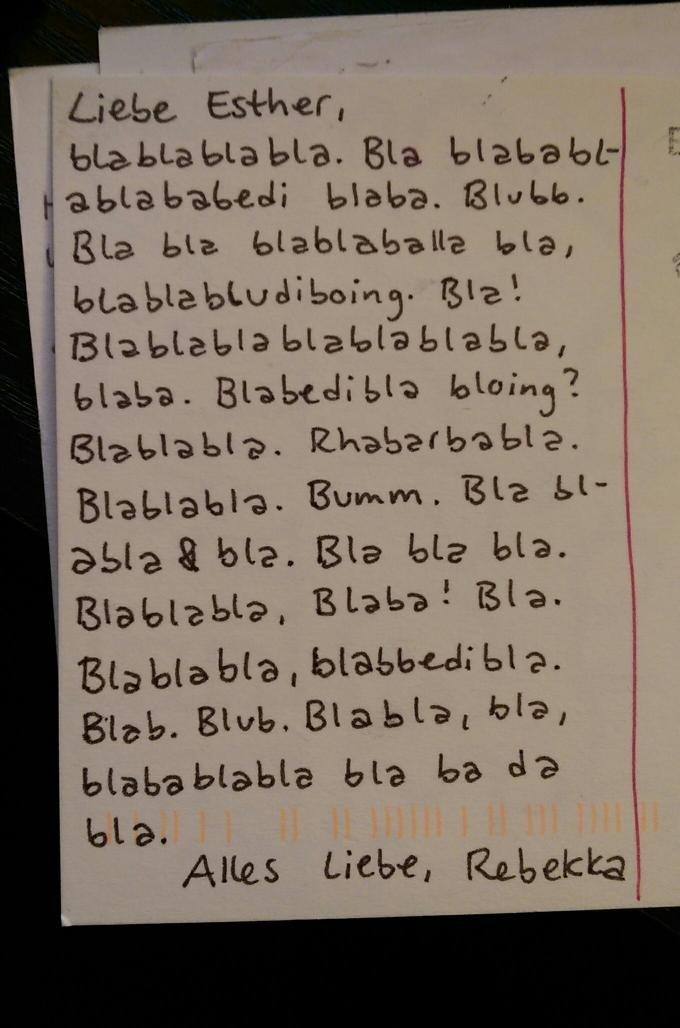 Liebe Esther,
blablablabla. Bla blababl-
ablababedi blaba. Blubb.
Bla bla blablaballa bla,
blablabludiboing. Bla!
Blablablablablablabla,
blaba. Blabedibla bloing?
Blablabla. Rhabarbabla.
Blablabla. Bumm. Bla bl-
abla & bla. Bla bla bla.
Blablabla, Blaba! Bla.
Blablabla, blabbedibla.
Blab. Blub. Blabla, bla,
blabablabla bla ba da
bla.
Alles Liebe, Rebekka